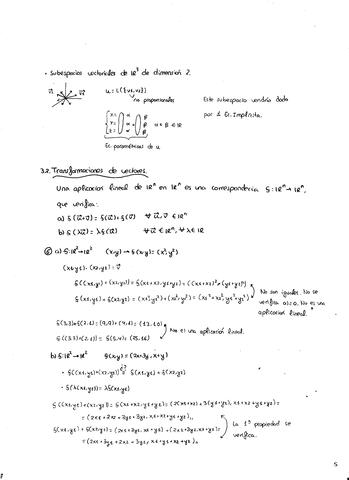 • Subespacios vectoriales de IR³ de dimensión 2.
u = L({v1,v2})
no proporcionales
Este subespacio vendría dado
por 1 Ec. Implícita.
α, β ∈ IR
Ec. paramétricas de u
3.2. Transformaciones de vectores.
Una aplicación lineal de IRⁿ en IRⁿ es una correspondencia f: IRⁿ→IRⁿ,
que verifica:
a) f(u⃗+v⃗) = f(u⃗)+f(v⃗) ∀ u⃗, v⃗ ∈ IRⁿ
b) f(λu⃗) = λf(u⃗) ∀ u⃗ ∈ IRⁿ, ∀ λ ∈ IR
⑥ a) f: IR²→IR² (x,y)→f(x,y) = (x²,y²)
f((x1,y1)+(x2,y2)) = f(x1+x2,y1+y2) = ((x1+x2)²,(y1+y2)²)
f(x1,y1)+f(x2,y2) = (x1²,y1²)+(x2²,y2²) = (x1²+x2²,y1²+y2²)
No son iguales. No se
verifica a)
No es una
aplicación lineal.
f(3,3)+f(2,1) = (9,9)+(4,1) = (13,10)
f((3,3)+(2,1)) = f(5,4) = (25,16)
No es una aplicación lineal.
b) f: IR²→IR² f(x,y) = (2x+3y, x+y)
• f((x1,y1)+(x2,y2)) = f(x1,y1)+f(x2,y2)
• f(λ(x1,y1)) = λf(x1,y1)
f((x1,y1)+(x2,y2)) = f(x1+x2,y1+y2) = (2(x1+x2)+3(y1+y2), x1+x2+y1+y2) =
= (2x1+2x2+3y1+3y2, x1+x2+y1+y2)
f(x1,y1)+f(x2,y2) = (2x1+3y1, x1+y1)+(2x2+3y2, x2+y2) =
= (2x1+3y1+2x2+3y2, x1+y1+x2+y2)
La 1ª propiedad se
verifica.
5